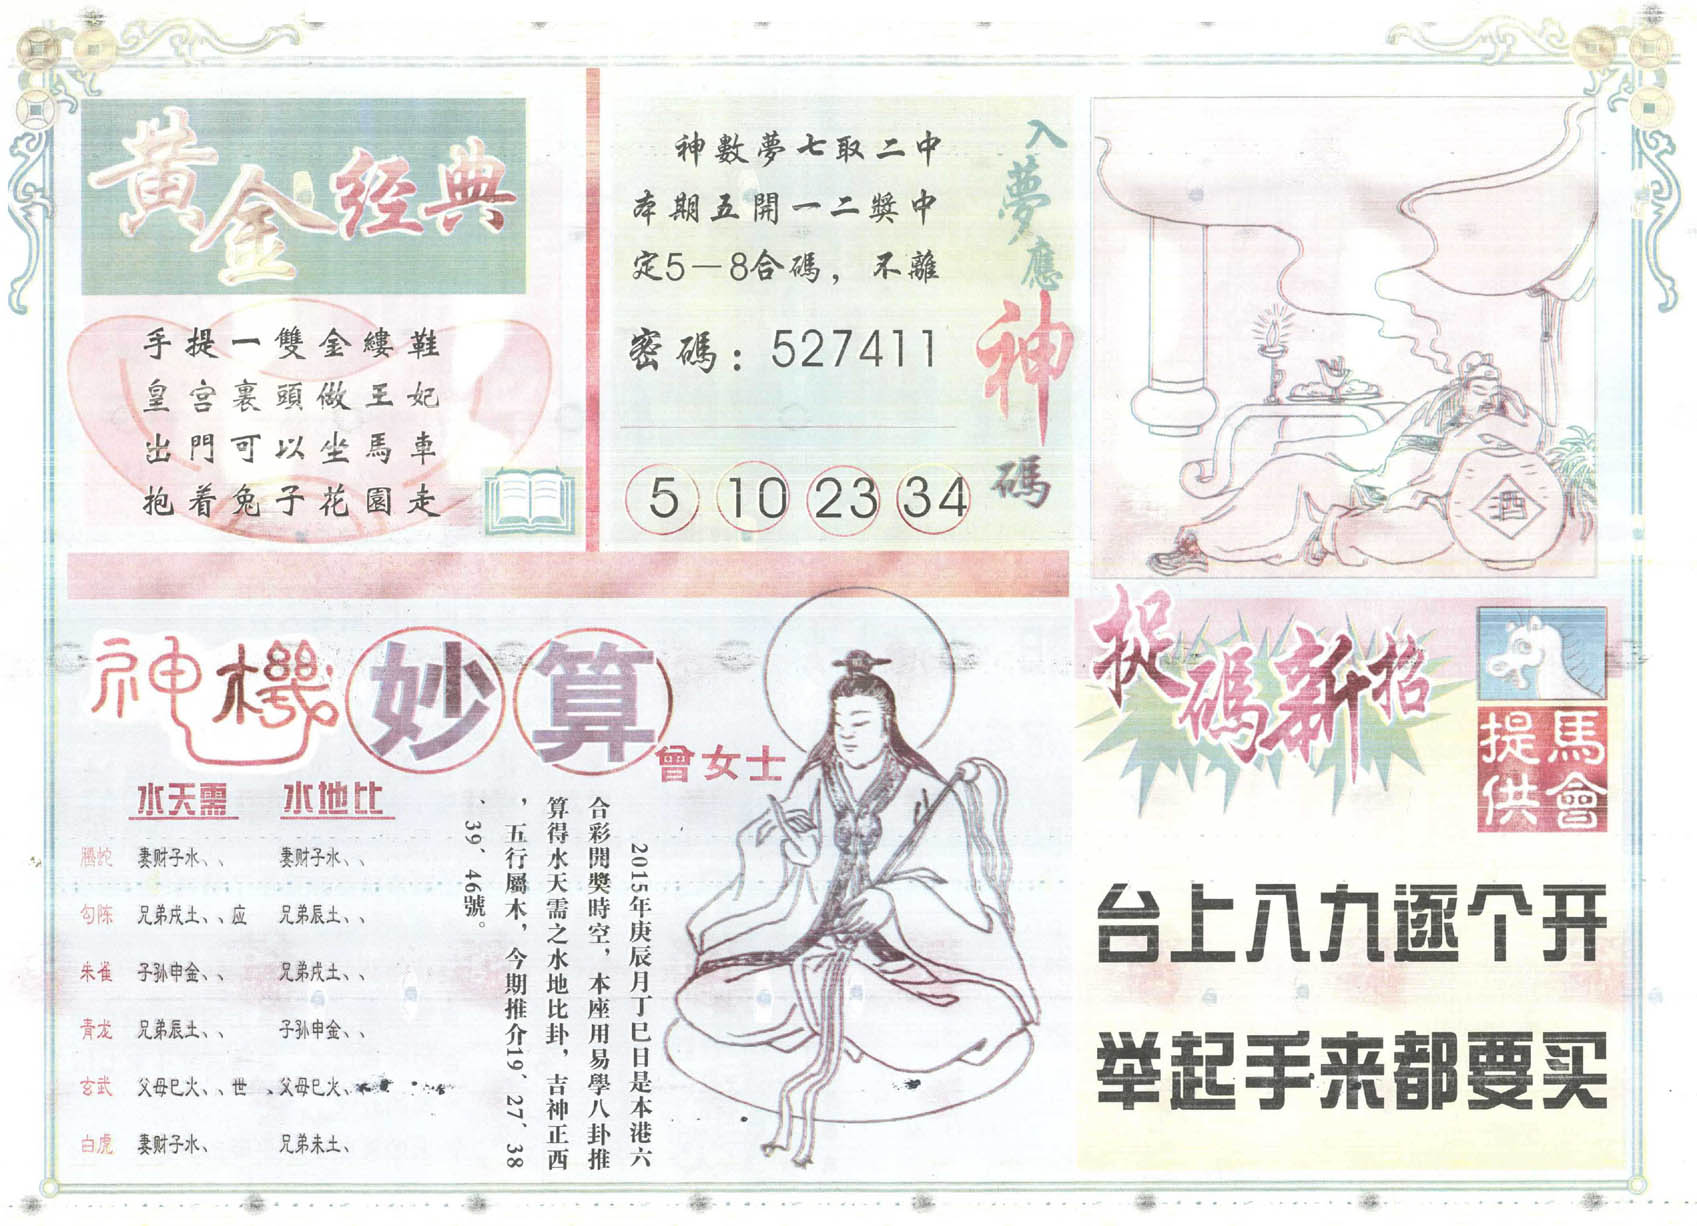 黃金经典
手提一雙金縷鞋
皇宫裏頭做王妃
出門可以坐馬車
抱着兔子花園走
神數夢七取二中
本期五開一二獎中
定5－8合碼，不離
密碼：527411
5 10 23 34
入夢應神碼
酒
神機妙算
曾女士
水天需 水地比
腾蛇 妻财子水、、 妻财子水、、
勾陈 兄弟戌土、、应 兄弟辰土、、
朱雀 子孙申金、、 兄弟戌土、、
青龙 兄弟辰土、、 子孙申金、、
玄武 父母巳火、、世 父母巳火、
白虎 妻财子水、 兄弟未土、
2015年庚辰月丁巳日是本港六
合彩開獎時空，本座用易學八卦推
算得水天需之水地比卦，吉神正西
，五行屬木，今期推介19、27、38
、39、46號。
捉碼新招
馬會提供
台上八九逐个开
举起手来都要买